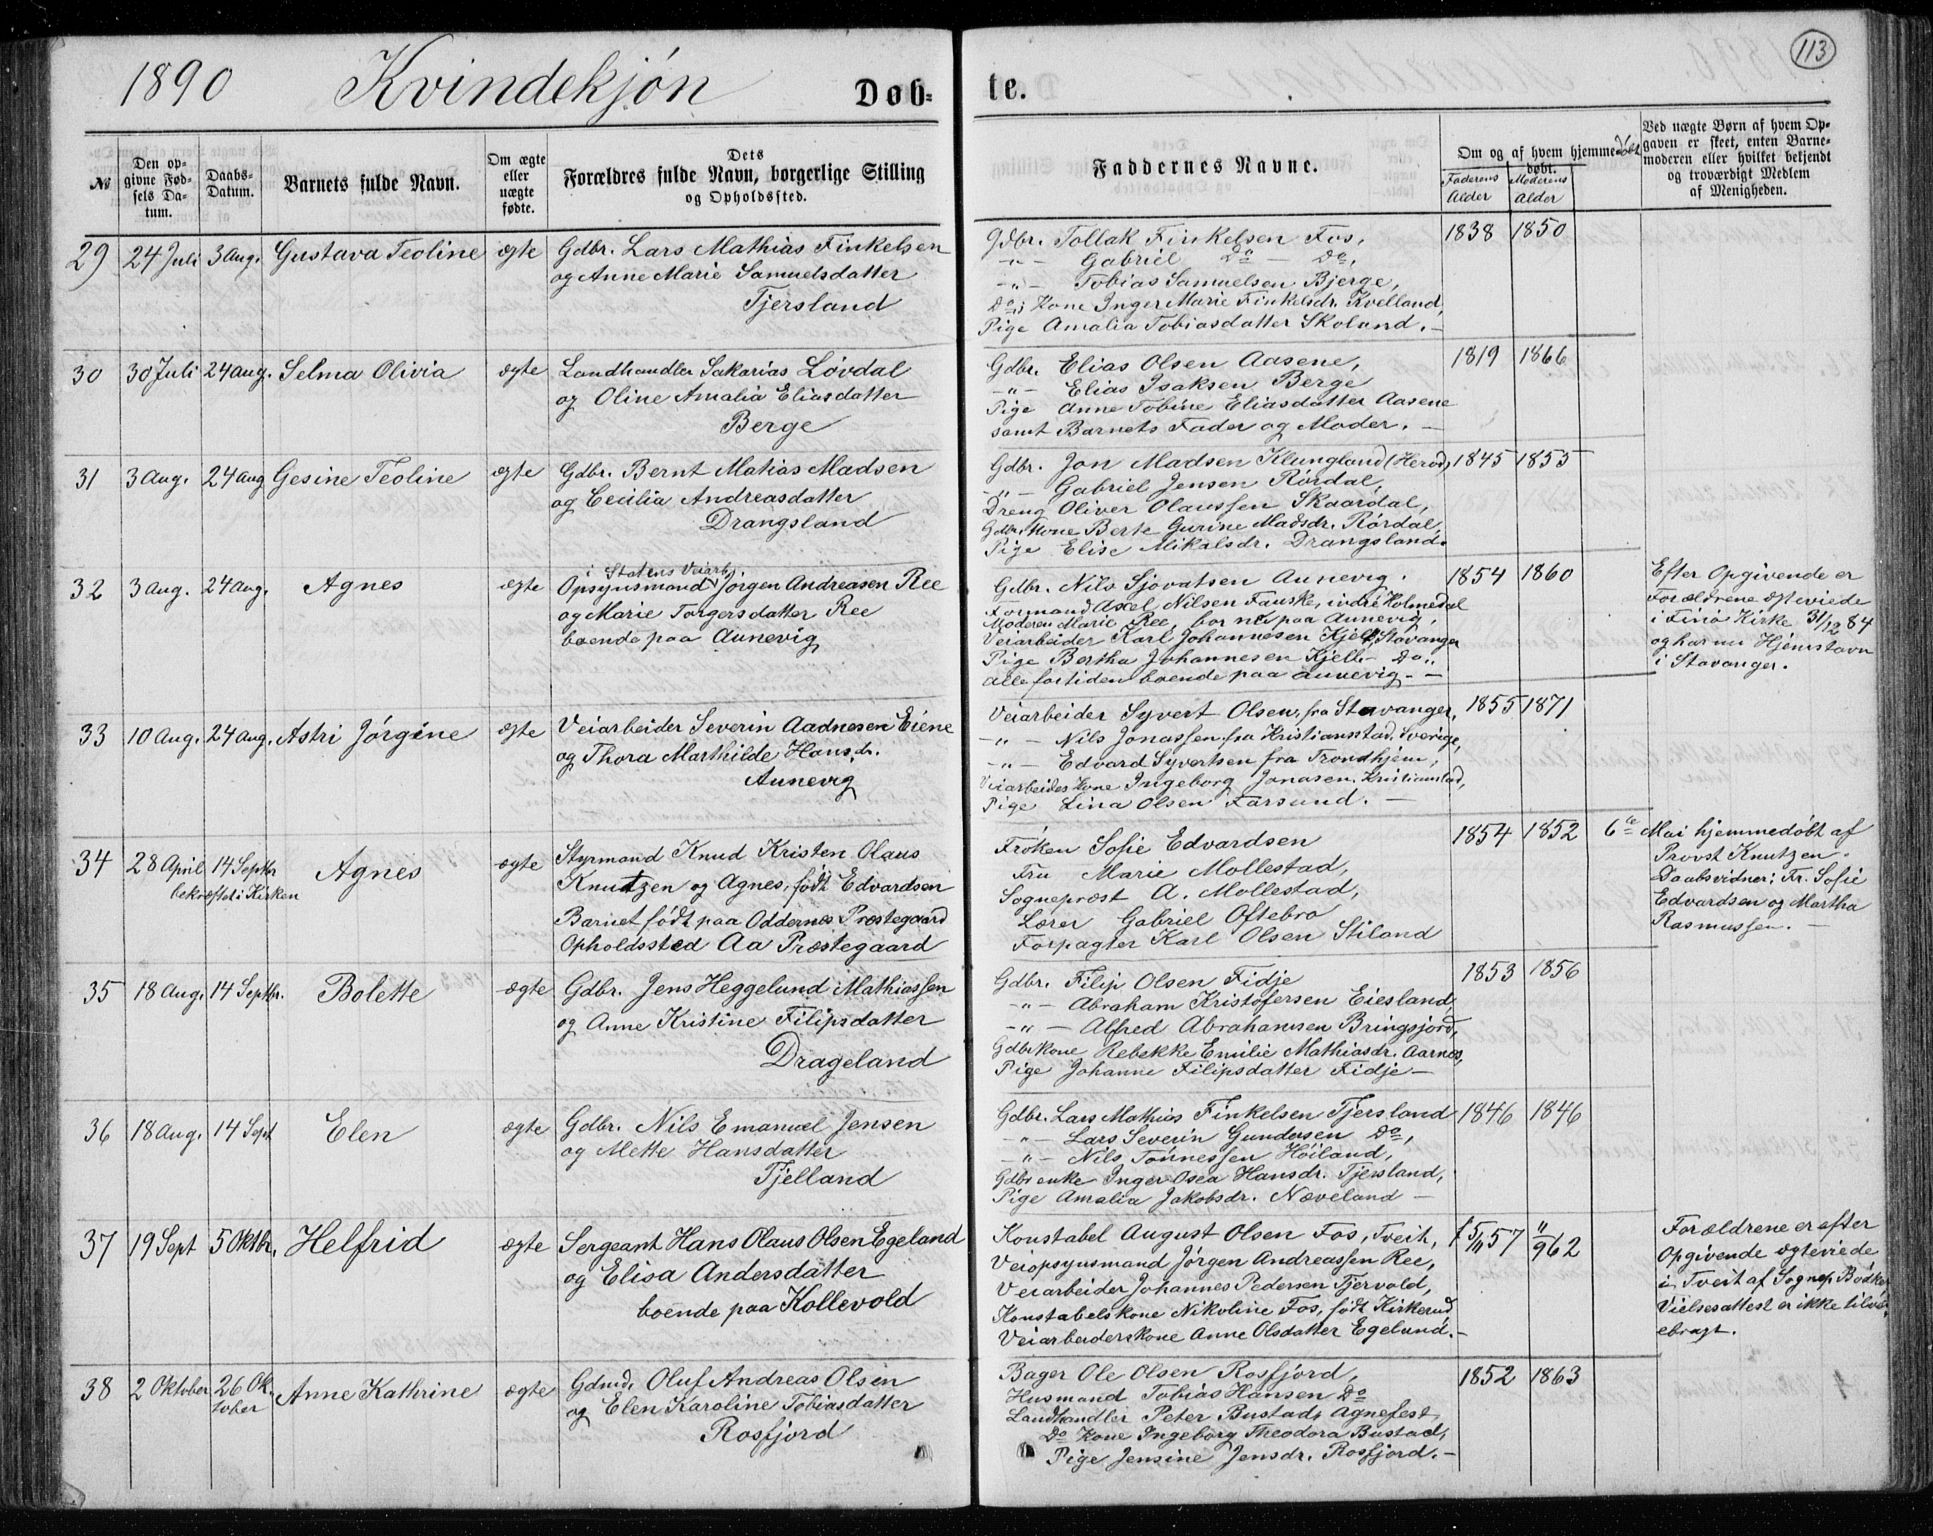 113
1890 Kvindekjøn Døb-
te.
No
Den op-
givne Fød-
sels Da-
tum.
Daabs-
Datum.
Barnets fulde Navn.
Om ægte
eller
uægte
fødte.
Dets
Forældres fulde Navn, borgerlige Stilling
og Opholdssted.
Faddernes Navne.
Om og af hvem hjemmedøbt
døbt.
Faderens
Alder
Moderens
Alder
Ved uægte Børn af hvem Op-
gaven er skeet, enten Barne-
moderen eller hvilket bekjendt
og troværdigt Medlem
af Menigheden.
29 24 Juli 3 Aug. Gustava Teoline ægte Gdbr. Lars Mathias Finkelsen
og Anne Marie Samuelsdatter
Tjersland
Gdbr. Tollak Finkelsen Fos, 1838 1850
-"- Gabriel Do - Do,
-"- Tobias Samuelsen Bjerge,
Do,s Kone Inger Marie Finkelsdr. Kvelland,
Pige Amalia Tobiasdatter Skoland. -
30 30 Juli 24 aug. Selma Olivia ægte Landhandler Sakarias Løvdal
og Oline Amalia Eliasdatter
Berge
Gdbr. Elias Olsen Aasene, 1819 1866
-"- Elias Isaksen Berge
Pige Anne Tobine Eliasdatter Aasene
samt Barnets Fader og Moder. -
31 3 Aug. 24 aug Gesine Teoline ægte Gdbr. Bernt Matias Madsen
og Cecilia Andreasdatter
Drangsland
Gdbr. Jon Madsen Klungland (Herod) 1845 1855
-"- Gabriel Jensen Rørdal,
Dreng Oliver Olaussen Skaardal,
Gdbr. Kone Berte Gurine Madsdr. Rørdal,
Pige Elise Mikalsdr. Drangsland.
32 3 Aug. 24 Aug. Agnes ægte
i Statens Veiarb.
Opsynsmand Jørgen Andreasen Ree
og Marie Torgersdatter Ree
boende paa Aunevig
Gdbr. Nils Sjovatsen Aunevig. 1854 1860
Formand Axel Nilsen Fauske, indre Holmedal
Moderen Marie Ree, bor nu paa Aunevig,
Veiarbeider Karl Johannesen Kjell, Stavanger
Pige Bertha Johannesen Kjell - Do.,
alle fortiden boende paa Aunevig. -
Efter Opgivende er
Forældrene ægteviede
i Finø Kirke 31/12 84
og har nu Hjemstavn
i Stavanger.
33 10 Aug. 24 aug. Astri Jørgine ægte Veiarbeider Severin Aadnesen Eiene
og Thora Marthilde Hansdr.
Aunevig
Veiarbeider Syvert Olsen, fra Stavanger, 1855 1871
-"- Nils Jonassen fra Kristiansstad. Sverige,
-"- Edvard Syvertsen fra Trondhjem,
Veiarbeides Kone Ingeborg Jonasen, Kristianstad,
Pige Lina Olsen Farsund. -
34 28 April 14 Septbr Agnes ægte
bekræftet i Kirken
Styrmand Knud Kristen Olaus
Knutzen og Agnes, født Edvardsen
Barnet født paa Oddernes Præstegaard
Opholdssted Aa Præstegaard
Frøken Sofie Edvardsen 1854 1852
Fru Marie Mollestad,
Sogneprest A. Mollestad,
Lærer Gabriel Oftebro
Forpagter Karl Olsen Stiland
6te Mai hjemmedøbt af
Provst Knutzen.
Daabsvidner: Fr. Sofie
Edvardsen og Martha
Rasmussen. -
35 18 Aug. 14 Septbr. Bolette ægte Gdbr. Jens Heggelund Mathiassen
og Anne Kristine Filipsdatter
Drageland
Gdbr. Filip Olsen Fidje 1853 1856
-"- Abraham Kristofersen Eiesland
-"- Alfred Abrahamsen Bringsjord,
Gdbrkone Rebekke Emilie Mathiasdr. Aarnes,
Pige Johanne Filipsdatter Fidje -
36 18 Aug. 14 Sept Elen ægte Gdbr. Nils Emanuel Jensen
og Mette Hansdatter
Fjelland
Gdbr. Lars Mathias Finkelsen Tjersland 1846 1846
-"- Lars Severin Gundersen Do,
-"- Nils Tønnessen Høiland,
Gdbr enke Inger Osea Hansdr. Tjersland,
Pige Amalia Jakobsdr. Næveland -
37 19 Sept 5 Oktbr. Helfrid ægte Sergeant Hans Olaus Olsen Egeland
og Elisa Andersdatter
boende paa Kollevold
Konstabel August Olsen Fos, Tveit, 5/11 57 11/9 62
Veiopsynsmand Jørgen Andreassen Ree,
Veiarbeider Johannes Pedersen Tjervold,
Konstabelskone Nikoline Fos, født Kirkerud
Veiarbeiderskone Anne Olsdatter Egeland. -
Forældrene er efter
Opgivende ægteviede
i Tveit af Sognep Bødker
Vielsesattest er ikke tilvei-
ebragt.
38 2 Oktober 26 Ok-
tober
Anne Kathrine ægte Gdmd. Oluf Andreas Olsen
og Elen Karoline Tobiasdatter
Rosfjord
Bager Ole Olsen Rosfjord, 1852 1863
Husmand Tobias Hansen Do
Landhandler Peter Bustad, Agnefest,
Do Kone Ingeborg Theodora Bustad,
Pige Jensine Jensdr. Rosfjord. -